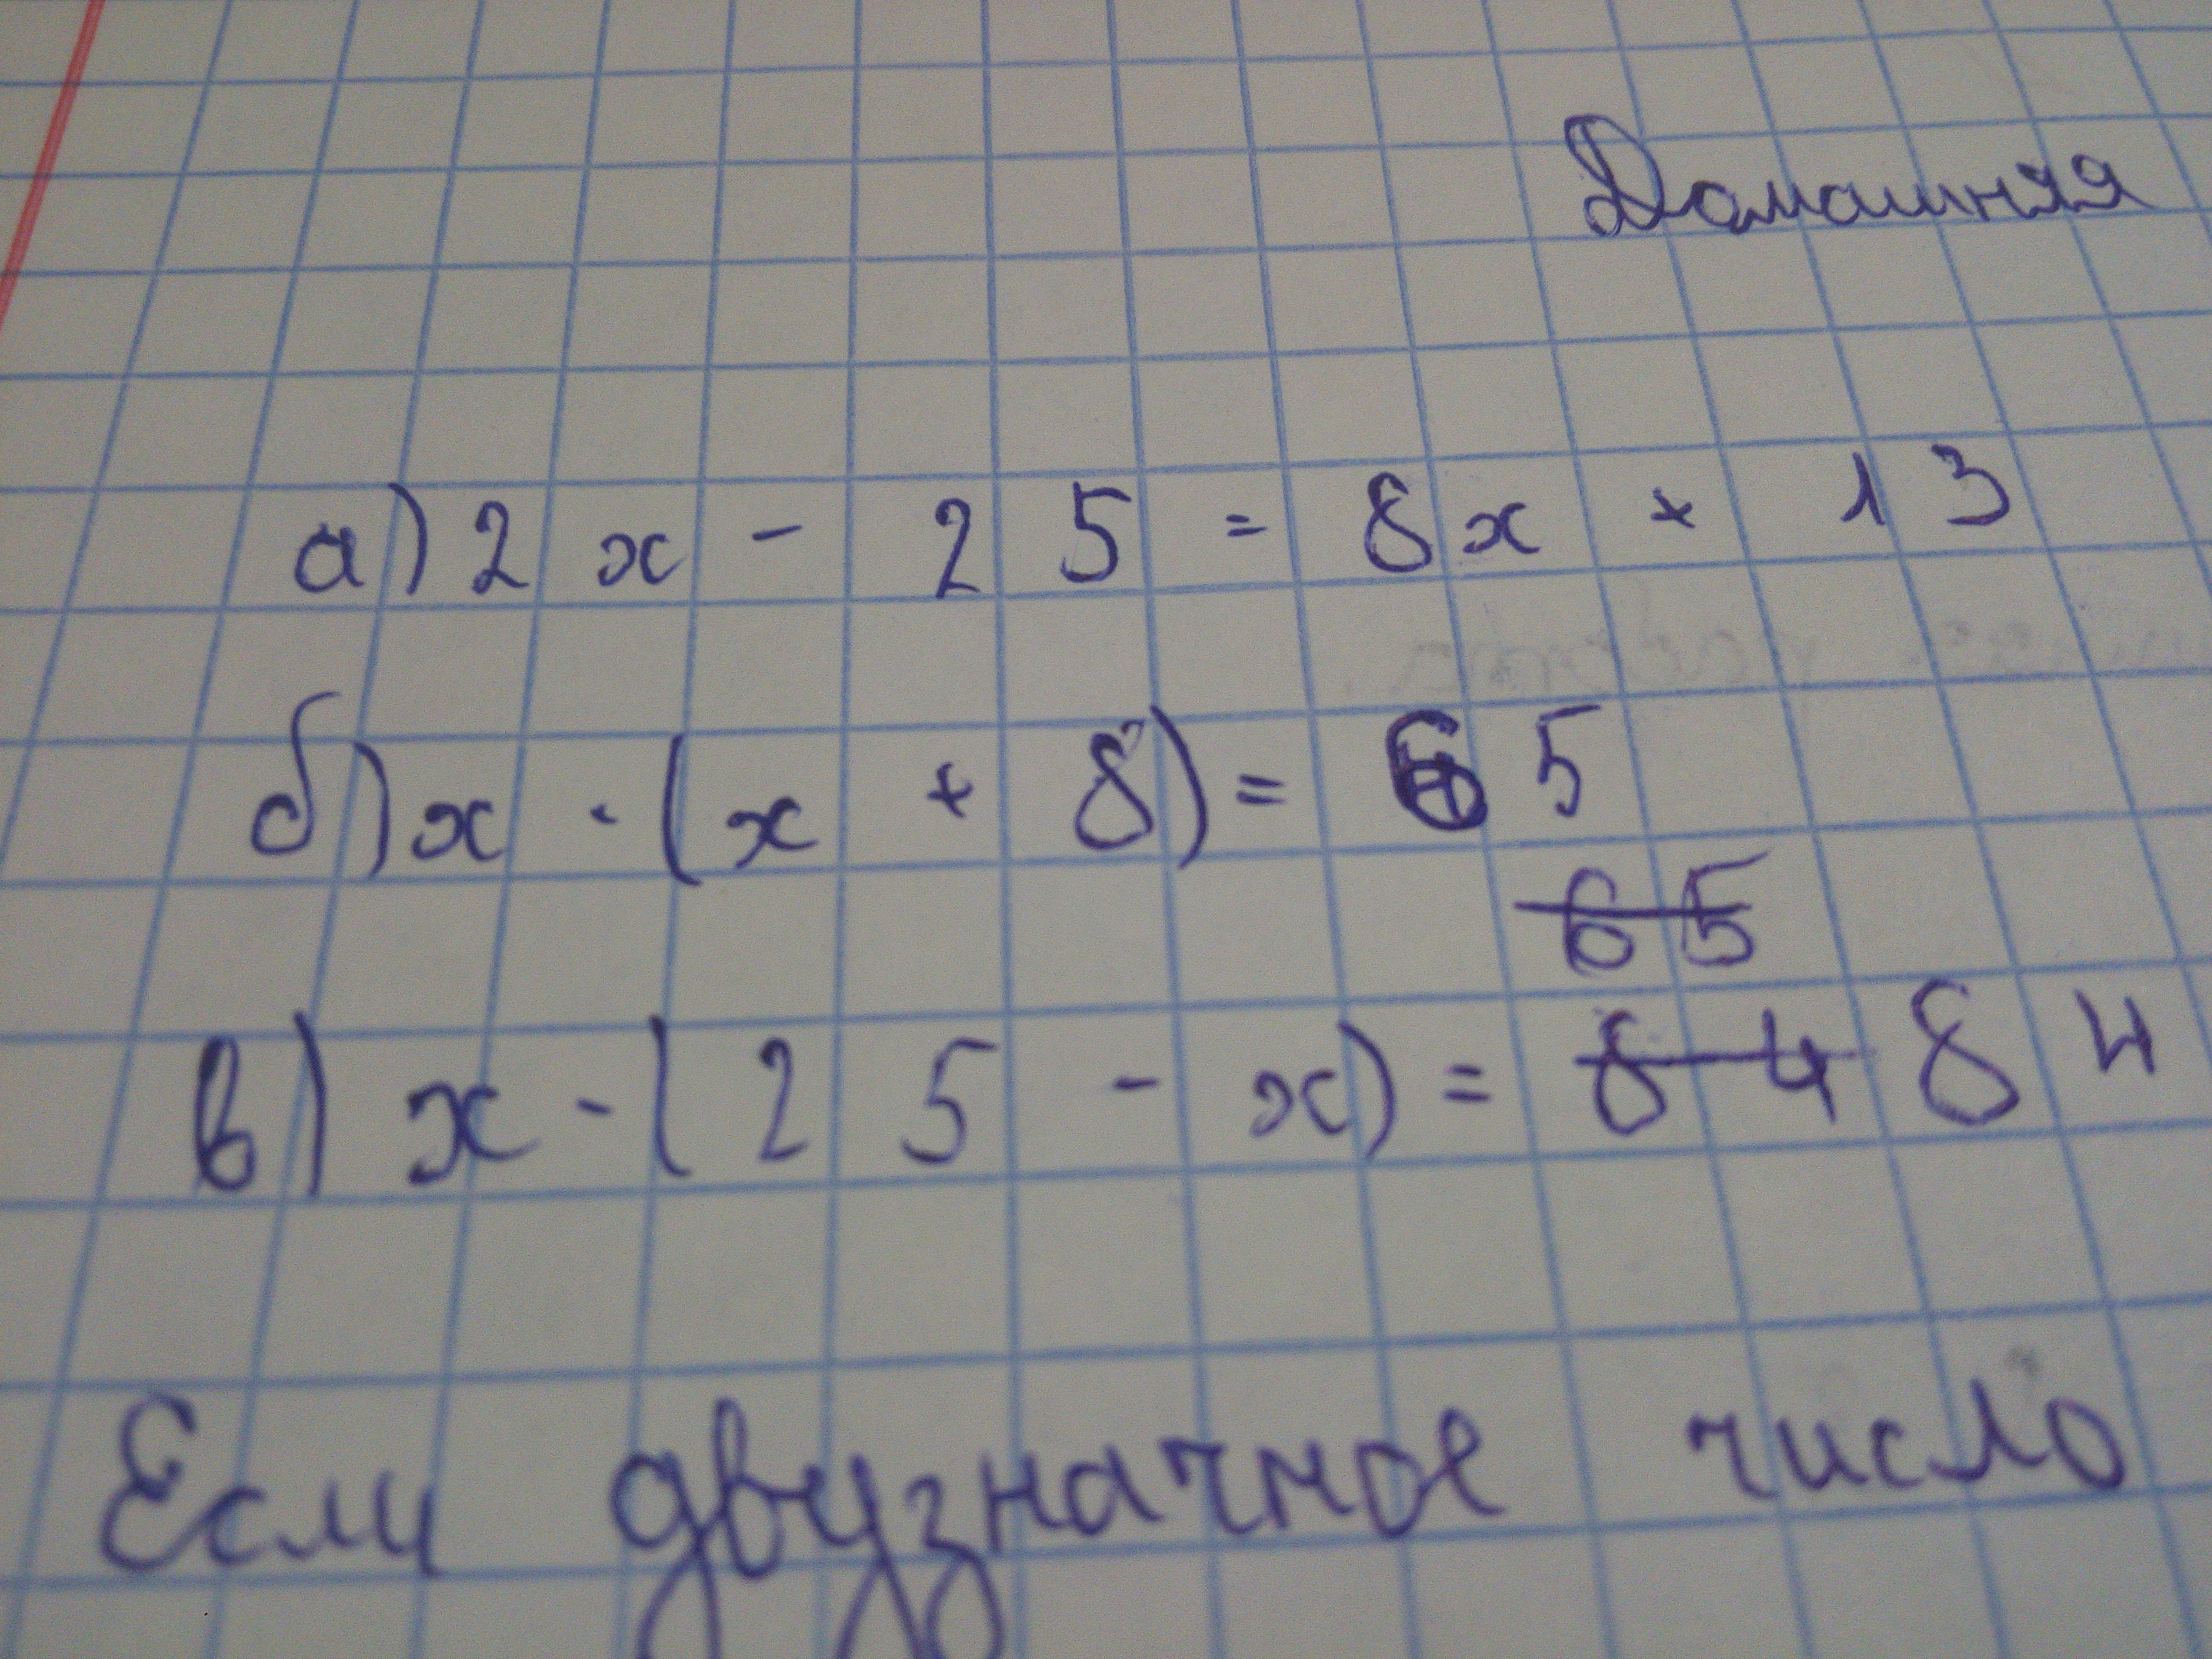 Домашняя
а) 2x - 25 = 8x + 13
б) x · (x + 8) = 65
65
в) x - (25 - x) = 84 84
Если двузначное число